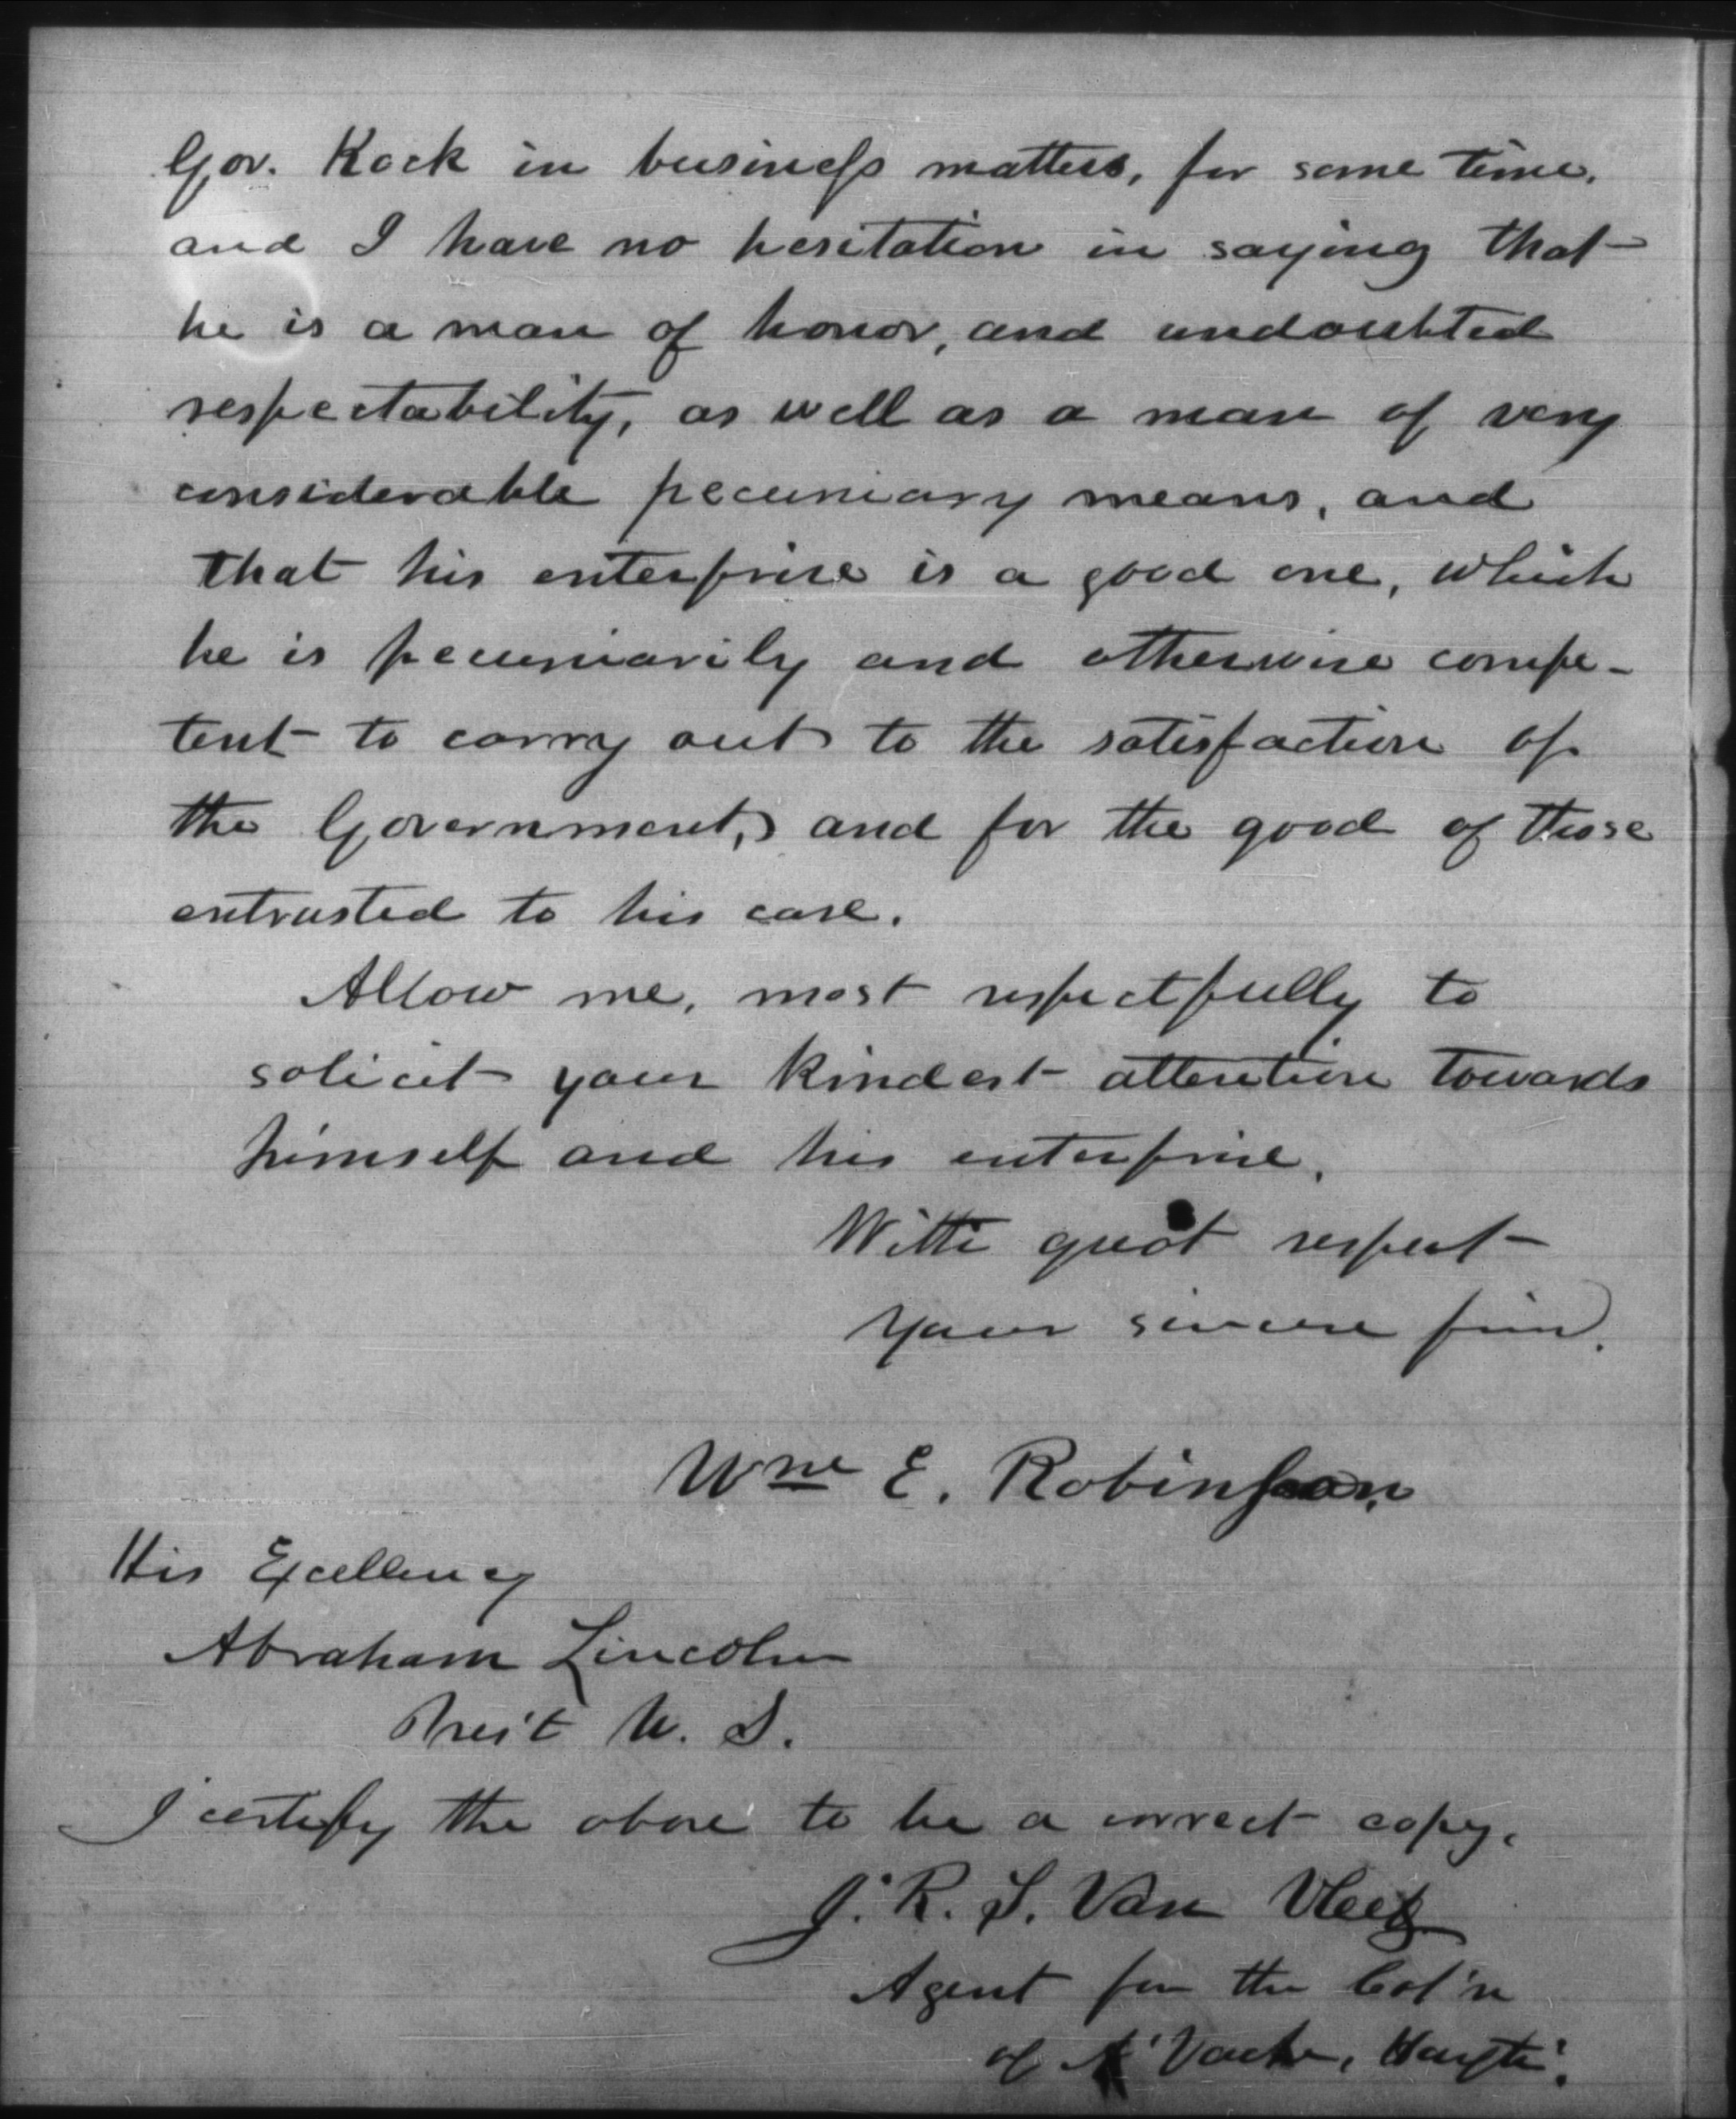 Gov. Kock in business matters, for some time,
and I have no hesitation in saying that
he is a man of honor, and undoubted
respectability, as well as a man of very
considerable pecuniary means, and
that his enterprise is a good one, which
he is pecuniarily and otherwise compe-
tent to carry out to the satisfaction of
the Government, and for the good of those
entrusted to his care.
Allow me, most respectfully to
solicit your kindest attention towards
himself and his enterprise.
With great respect
Your sincere frind.
Wm E. Robinson.
His Excellency
Abraham Lincoln
Pres't U. S.
I certify the above to be a correct copy.
J. R. S. Van Vleet
Agent for the Col'n
of A'Vache, Hayti.